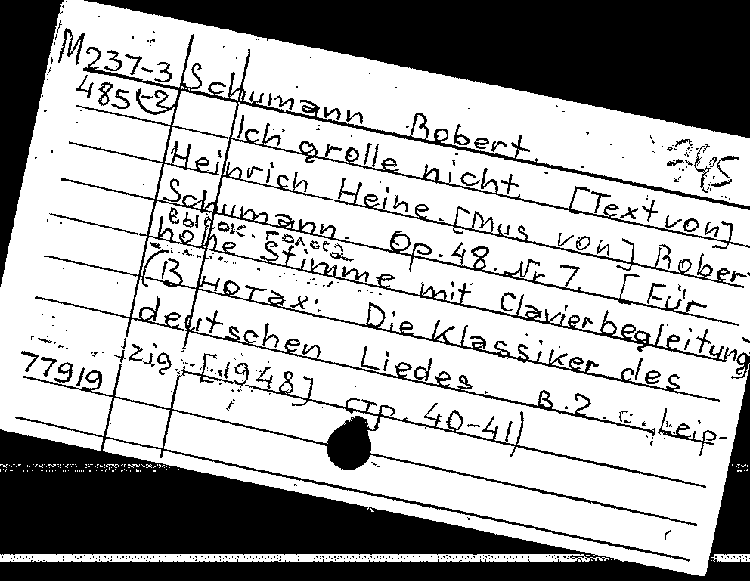 М 237-3 Schumann Robert.
485(-2)
745
Ich grolle nicht. [Text von]
Heinrich Heine. [Mus von] Rober
Schumann. Op. 48. Nr 7. [Für
высок. голоса
hohe Stimme mit Clavierbegleitung
(В нотах: Die Klassiker des
deutschen Liedes. B. 2. Leip-
zig [1948] стр. 40-41)
77919